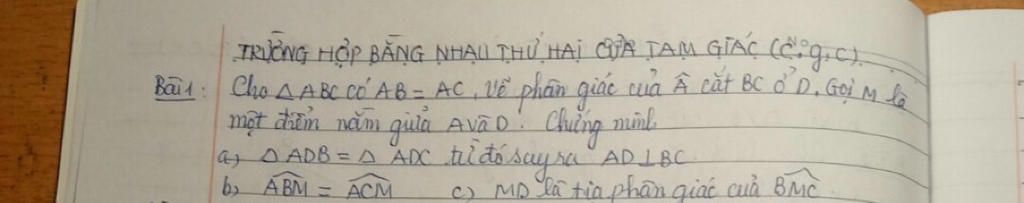 TRƯỜNG HỢP BẰNG NHAU THỨ HAI CỦA TAM GIÁC (C.g.C).
Bài 1: Cho △ABC có AB = AC, vẽ phân giác của Â cắt BC ở D, Gọi M là
một điểm nằm giữa A và D. Chứng minh
a, △ ADB = △ ADC từ đó suy ra AD⊥BC
b, \widehat{ABM} = \widehat{ACM} c, MD là tia phân giác của \widehat{BMC}